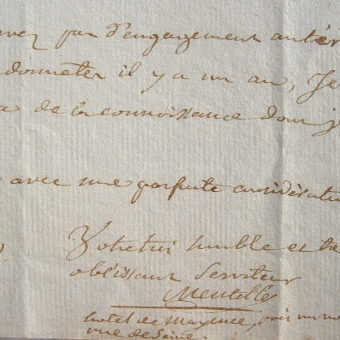 avez pas d'engagement antér
donneter il y a un an, Je
de la connoissance dont j
avec une parfaite considératio
Votre très humble et tr
obéissant Serviteur
Mentelle
hotel de Mayence,
rue de Seine.